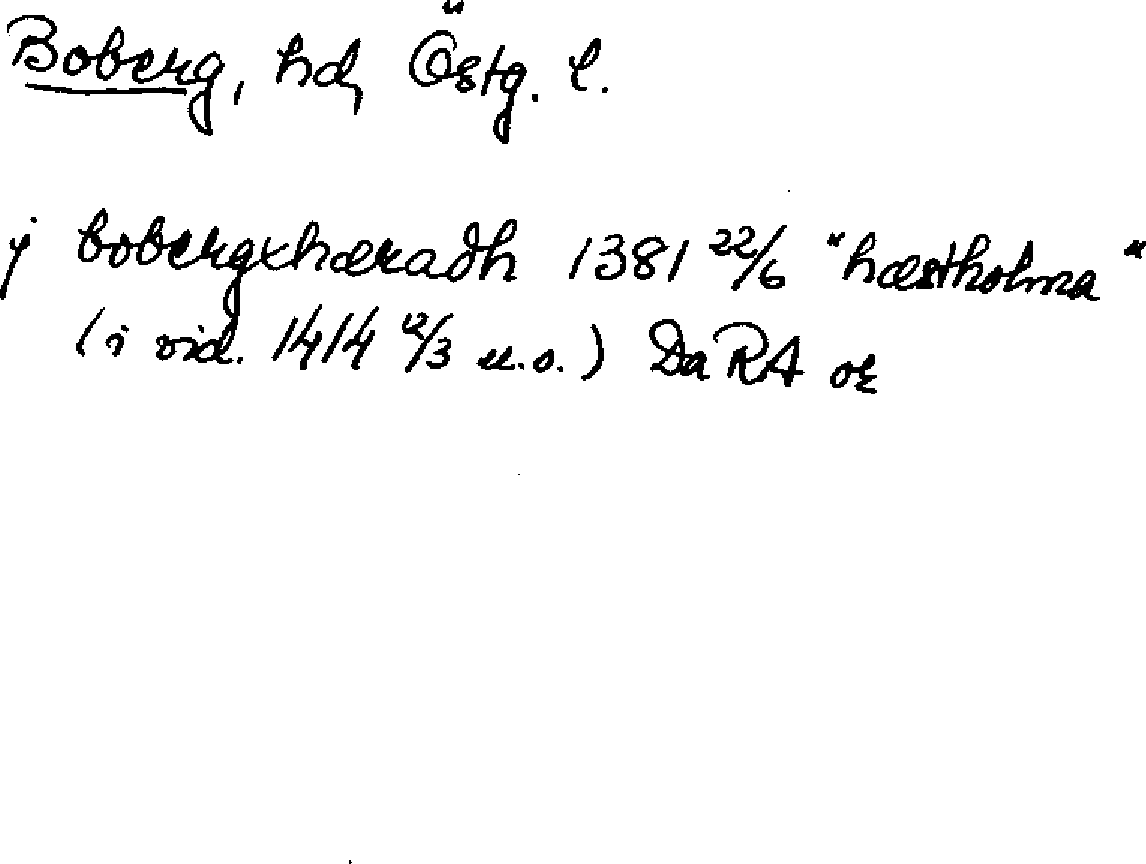 Boberg, hd, Östg. l.
j bobergxhæradh 1381 22/6 "hæstholma"
(i vid. 1414 12/3 u.o.) DaRA or